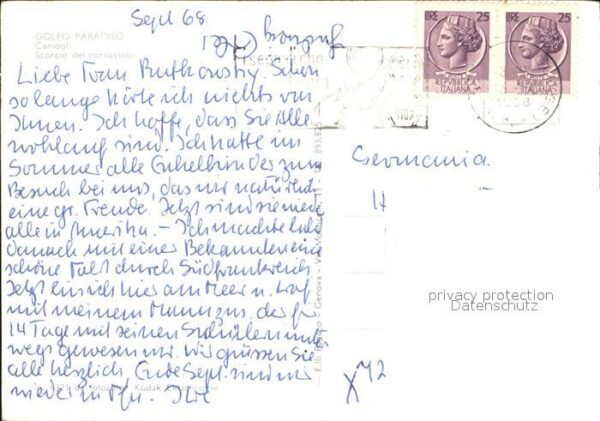 Sept. 68
GOLFO PARADISO
Camogli
Scorcio del porticciolo
Liebe Frau Rutkowsky. Schon
so lange hörte ich nichts von
Ihnen. Ich hoffe, dass Sie alle
wohlauf sind. Ich hatte im
Sommer alle Enkelkinder zum
Besuch bei uns, das mir natürlich
eine gr. Freude. Jetzt sind sie
alle in Amerika. - Ich machte
danach mit einer Bekannten eine
schöne Fahrt durch Südfrankreich
Jetzt bin ich hier am Meer u. traf
mit meinem Mann zus. der
14 Tage mit seinen Schülern unter
wegs gewesen war. Wir grüssen Sie
alle herzlich, Ende Sept. sind wir
wieder in
REPUBBLICA
ITALIANA
LIRE 25
REPUBBLICA
ITALIANA
LIRE 25
Germania
privacy protection
Datenschutz